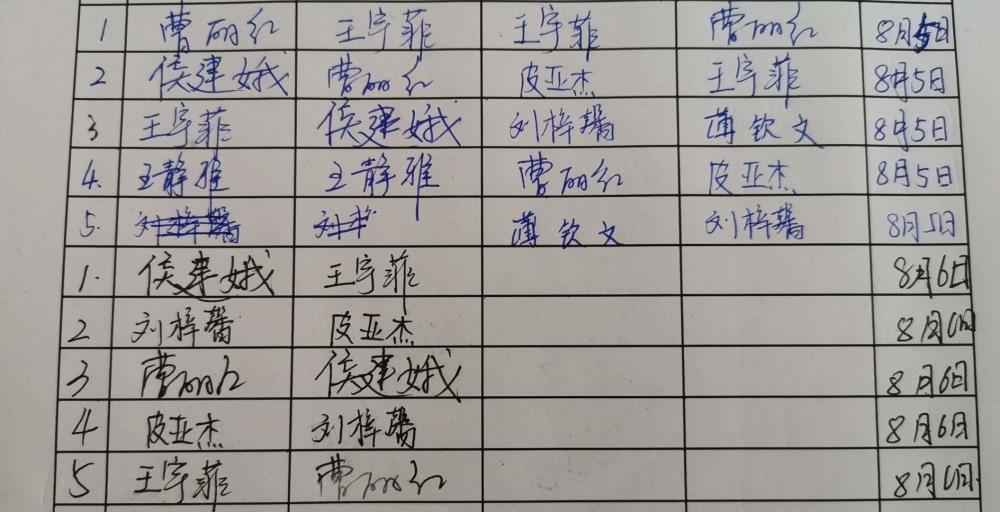 1 曹丽红 王宇菲 王宇菲 曹丽红 8月5日
2 侯建娥 曹丽红 皮亚杰 王宇菲 8月5日
3 王宇菲 侯建娥 刘梓馨 薄钦文 8月5日
4. 王静雅 王静雅 曹丽红 皮亚杰 8月5日
5. 刘梓馨 刘梓 薄钦文 刘梓馨 8月5日
1. 侯建娥 王宇菲 8月6日
2 刘梓馨 皮亚杰 8月6日
3 曹丽红 侯建娥 8月6日
4 皮亚杰 刘梓馨 8月6日
5 王宇菲 曹丽红 8月6日